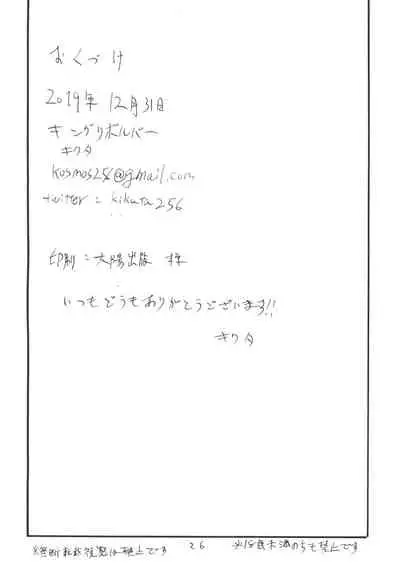 おくづけ
2019年 12月31日
キングリボルバー
キクタ
kosmos256@gmail.com
twitter : kikuta256
印刷 : 太陽出版 様
いつもどうもありがとうございます!!
キクタ
※無断転載複製は禁止です
26
※18歳未満のちも禁止です